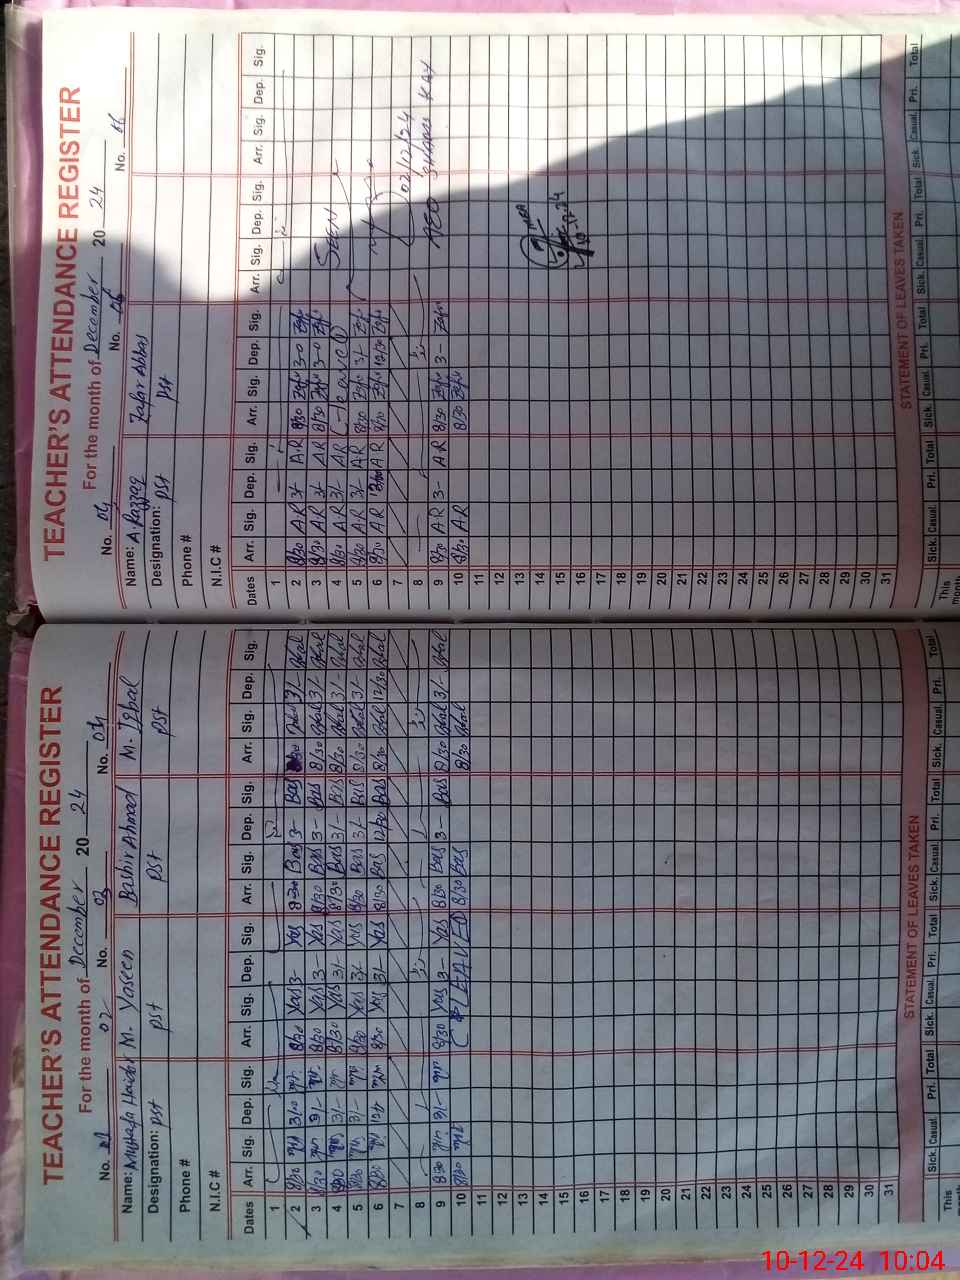 TEACHER'S ATTENDANCE REGISTER
For the month of December 20 24
No. 02 No. 03 No. 04
Name: Mustafa Haider M. Yaseen Bashir Ahmad M. Iqbal
Designation: PSt PSt PSt PSt
Phone #
N.I.C #
Dates Arr. Sig. Dep. Sig. Arr. Sig. Dep. Sig. Arr. Sig. Dep. Sig. Arr. Sig. Dep. Sig.
1
2 8/30 3/00 8/30 Yas 3- Yas 8-30 Bas 3- Bas 8/30 Iqbal 3/- Iqbal
3 8/30 3/- 8/30 Yas 3- Yas 8/30 Bas 3- Bas 8/30 Iqbal 3/- Iqbal
4 8/30 3/- 8/30 Yas 3/- Yas 8/30 Bas 3/- Bas 8/30 Iqbal 3/- Iqbal
5 8/30 3/- 8/30 Yas 3/- Yas 8/30 Bas 3/- Bas 8/30 Iqbal 3/- Iqbal
6 8/30 8/30 Yas 3/- Yas 8/30 Bas 12/30 Bas 8/30 Iqbal 12/30 Iqbal
7
8
9 8/30 3/- 8/30 Yas 3- Yas 8/30 Bas 3- Bas 8/30 Iqbal 3/- Iqbal
10 8/30 8/30 Bas 8/30 Iqbal
11
12
13
14
15
16
17
18
19
20
21
22
23
24
25
26
27
28
29
30
31
STATEMENT OF LEAVES TAKEN
Sick. Casual. Pri. Total Sick. Casual. Pri. Total Sick. Casual. Pri. Total Sick. Casual. Pri. Total
This month
TEACHER'S ATTENDANCE REGISTER
For the month of December 20 24
No. No. No.
Name: A. Razzaq Zafar Abbas
Designation: PSt PSt
Phone #
N.I.C #
Dates Arr. Sig. Dep. Sig. Arr. Sig. Dep. Sig. Arr. Sig. Dep. Sig. Arr. Sig. Dep. Sig.
1
2 8/30 A.R 3/- A.R 8/30 3-0
3 8/30 A.R 3/- A.R 8/30 3-0
4 8/30 A.R 3/- A.R Leave
5 8/30 A.R 3/- A.R 8/30 3/-
6 8/30 A.R 12/30 A.R 8/30 12/30
7
8
9 8/30 A.R 3- A.R 8/30 3-
10 8/30 A.R 8/30
SEEN
02/12/24
AEO
MEA
10-12-24
11
12
13
14
15
16
17
18
19
20
21
22
23
24
25
26
27
28
29
30
31
STATEMENT OF LEAVES TAKEN
Sick. Casual. Pri. Total Sick. Casual. Pri. Total Sick. Casual. Pri. Total Sick. Casual. Pri. Total
This month
10-12-24 10:04